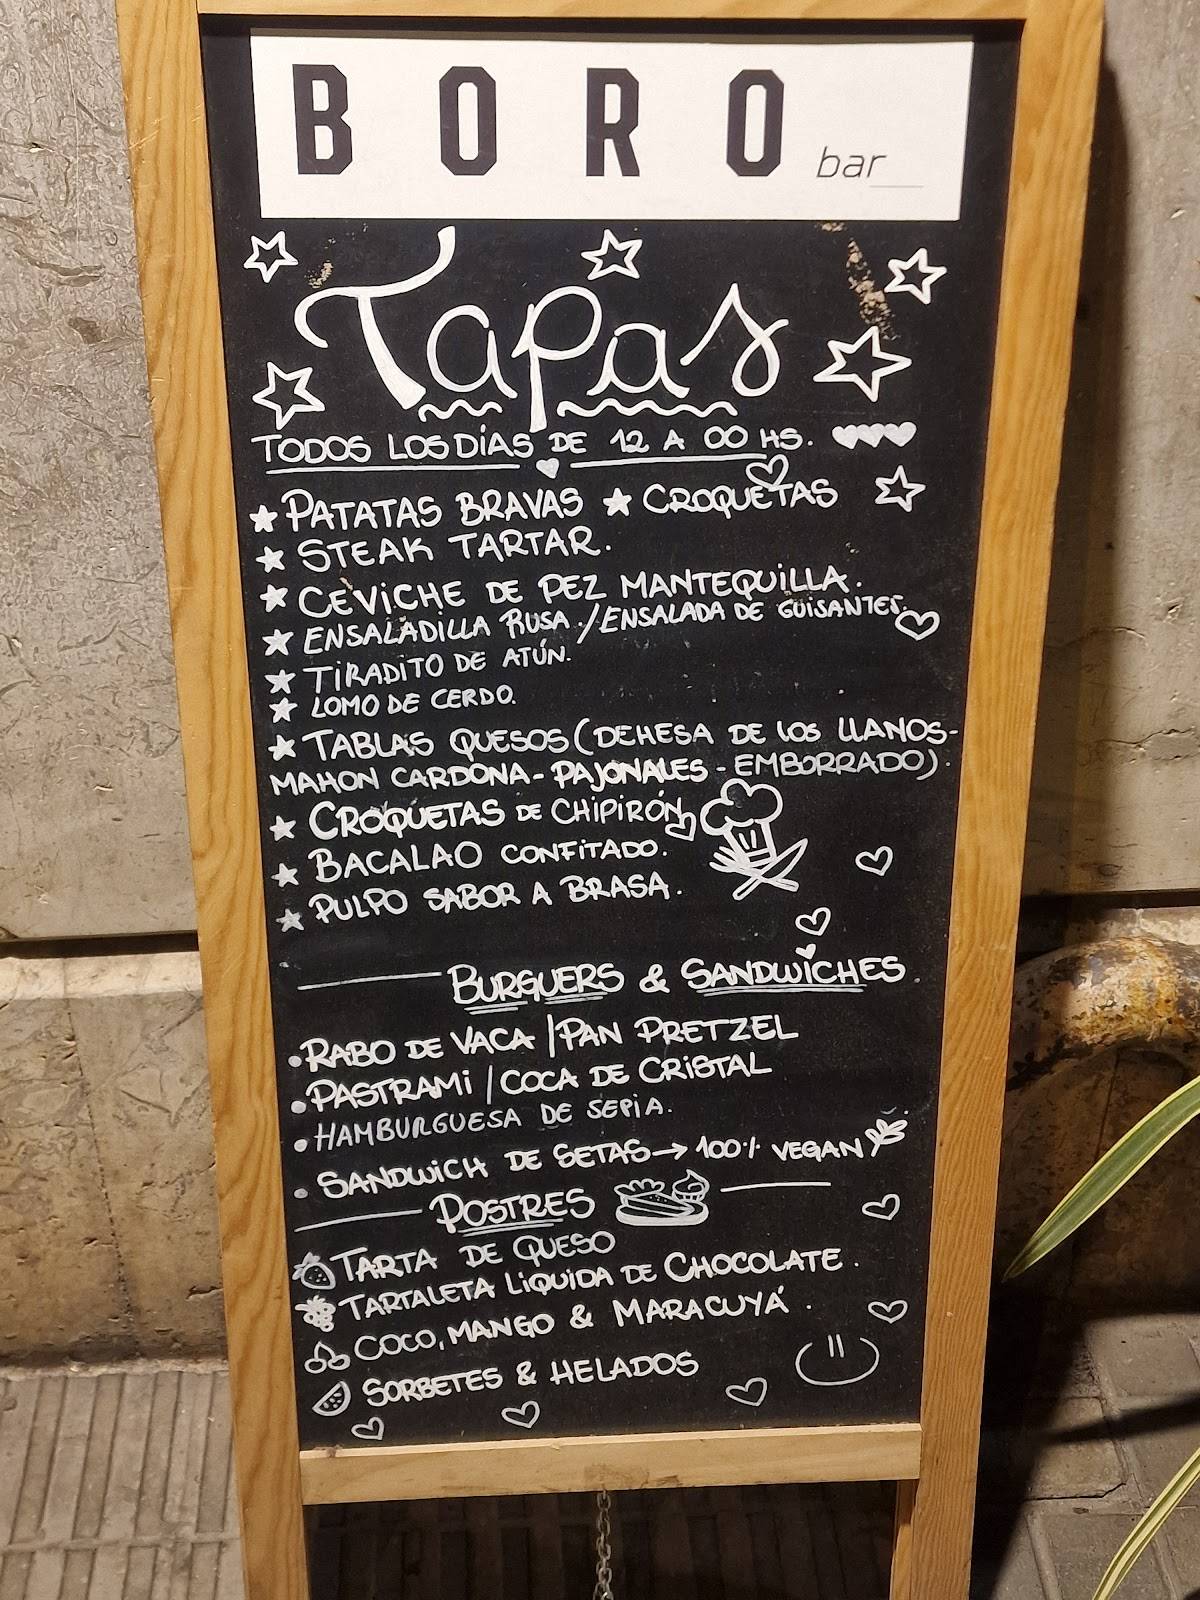 BORO bar
Tapas
TODOS LOS DÍAS DE 12 A 00 HS.
PATATAS BRAVAS ★ CROQUETAS
STEAK TARTAR.
CEVICHE DE PEZ MANTEQUILLA.
ENSALADILLA RUSA./ENSALADA DE GUISANTES.
TIRADITO DE ATÚN.
LOMO DE CERDO.
TABLAS QUESOS (DEHESA DE LOS LLANOS-
MAHON CARDONA-PAJONALES-EMBORRADO).
CROQUETAS DE CHIPIRÓN
BACALAO CONFITADO.
PULPO SABOR A BRASA.
BURGUERS & SANDWICHES.
RABO DE VACA /PAN PRETZEL
PASTRAMI /COCA DE CRISTAL
HAMBURGUESA DE SEPIA.
SANDWICH DE SETAS→100% VEGAN
POSTRES
TARTA DE QUESO
TARTALETA LIQUIDA DE CHOCOLATE.
COCO, MANGO & MARACUYÁ.
SORBETES & HELADOS